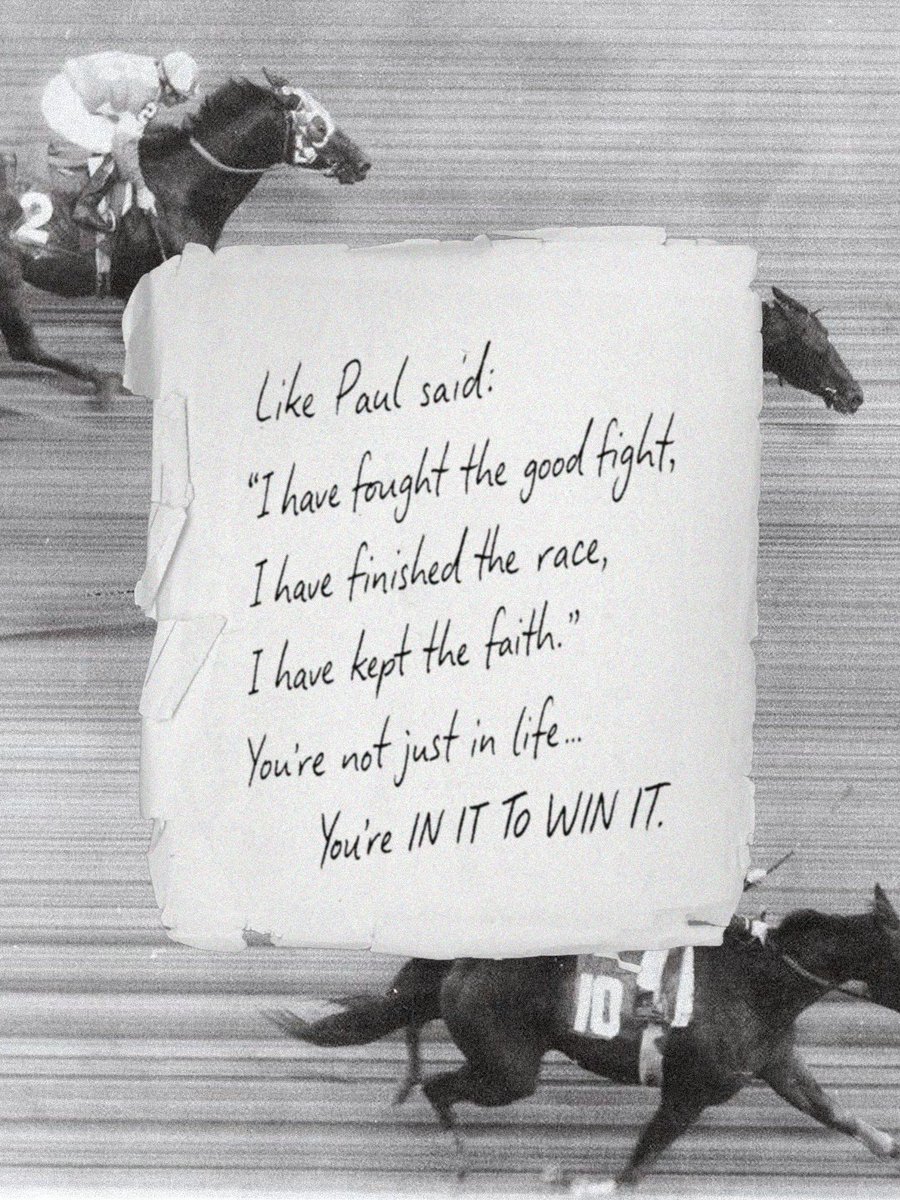 2
Like Paul said:
“I have fought the good fight,
I have finished the race,
I have kept the faith.”
You're not just in life...
You're IN IT TO WIN IT.
10